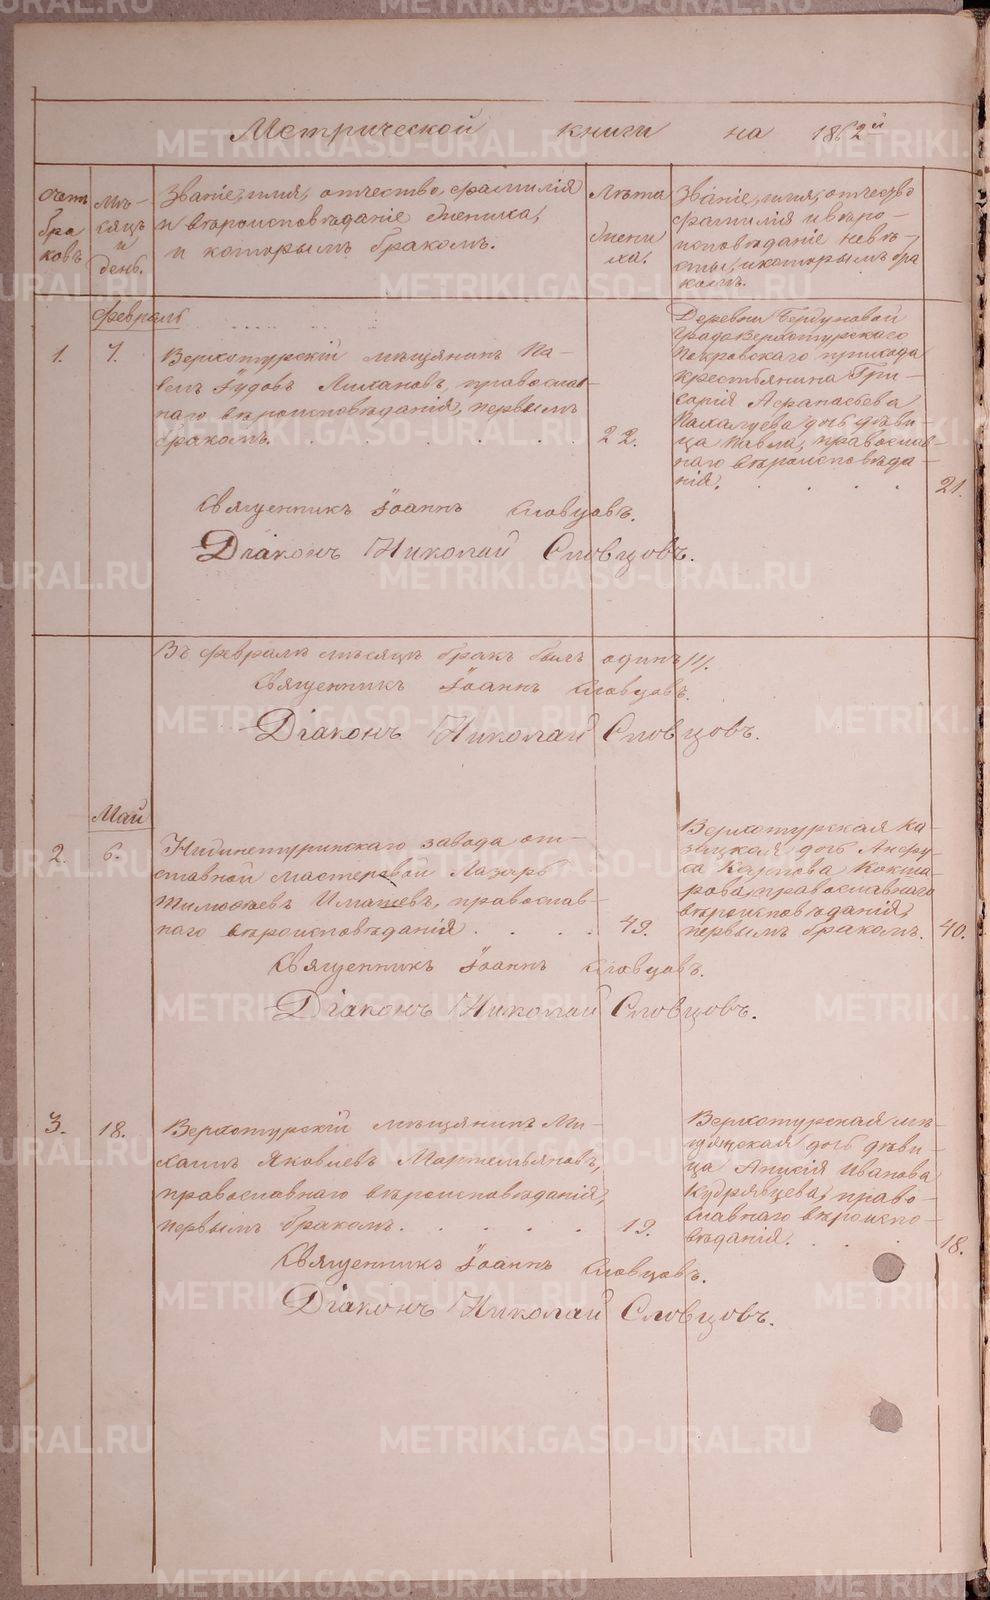 Метрической книги на 1862й
Счетъ
бра
ковъ
Мѣ-
сяцъ
и
день.
Званіе, имя, отчество, фамилія
и вѣроисповѣданіе жениха,
и которымъ бракомъ.
Лѣта
жени
ха.
Званіе, имя, отчество
фамилія и вѣро-
исповѣданіе невѣ-
сты, и которымъ бра
комъ.
Февраль
1.
7.
Верхотурскій мѣщянинъ Па-
велъ Іудовъ Лихановъ, православ-
наго вѣроисповѣданія, первымъ
бракомъ.
22.
Деревни
Градоверхотурскаго
Покровскаго прихода
крестьянина Гри-
горія Афанасьева
дочь дѣви-
ца Павла, православ-
наго вѣроисповѣда-
нія.
21.
Священникъ Іоаннъ Словцовъ.
Діаконъ Николай Словцовъ.
Въ февралѣ мѣсяцѣ бракъ былъ одинъ /1/.
Священникъ Іоаннъ Словцовъ.
Діаконъ Николай Словцовъ.
Май
2.
6.
Нижнетуринскаго завода от-
ставной мастеровой Лазарь
Тимофеевъ православ-
наго вѣроисповѣданія
49.
Верхотурская ка-
зацкая дочь Анфу-
са Карпова Кокша-
рова, православнаго
вѣроисповѣданія,
первымъ бракомъ.
40.
Священникъ Іоаннъ Словцовъ.
Діаконъ Николай Словцовъ.
3.
18.
Верхотурскій мѣщянинъ Ми-
хаилъ Яковлевъ Мартемьяновъ,
православнаго вѣроисповѣданія,
первымъ бракомъ.
19.
Верхотурская мѣ-
щянская дочь дѣви-
ца Анисія Иванова
Кудрявцева, право-
славнаго вѣроиспо-
вѣданія.
18.
Священникъ Іоаннъ Словцовъ.
Діаконъ Николай Словцовъ.
METRIKI.GASO-URAL.RU